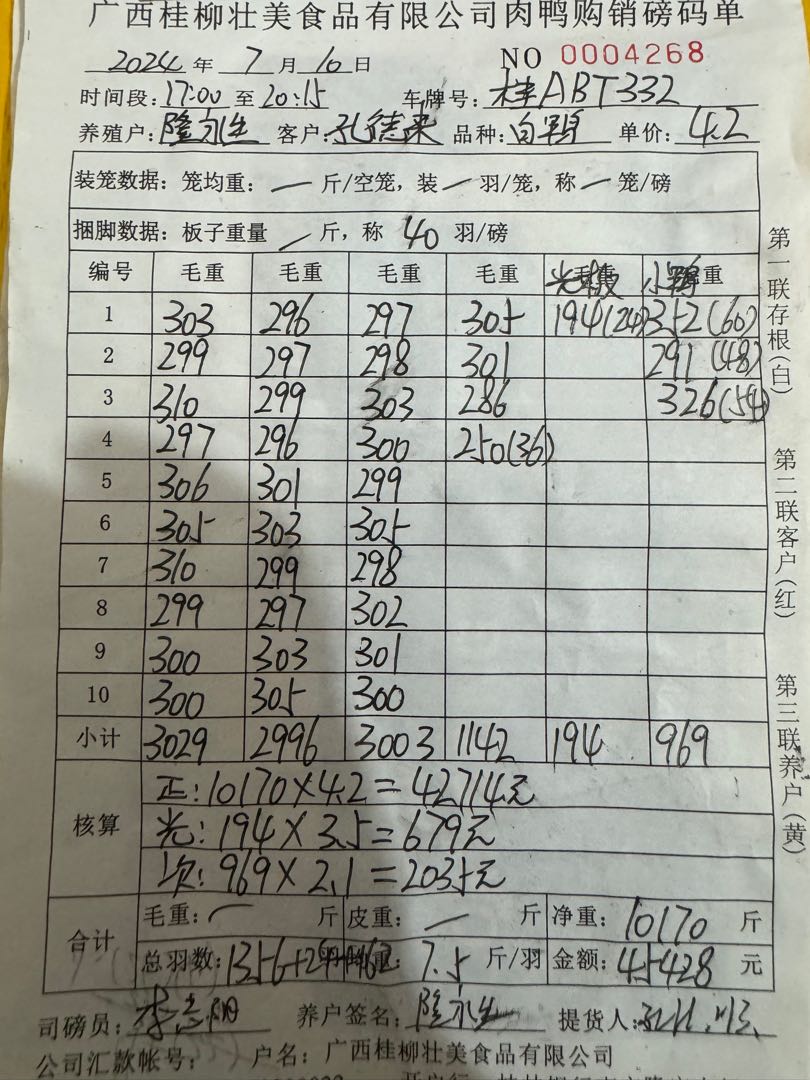 广西桂柳壮美食品有限公司肉鸭购销磅码单
2024年 7月 10日 NO 0004268
时间段: 17:00 至 20:15 车牌号: 桂ABT332
养殖户: 隆永生 客户: 孔德来 品种: 白鸭 单价: 4.2
装笼数据: 笼均重: — 斤/空笼, 装 — 羽/笼, 称 — 笼/磅
捆脚数据: 板子重量 — 斤, 称 40 羽/磅
编号 毛重 毛重 毛重 毛重 光 小鸭
1 303 296 297 305 194(24) 352(60)
2 299 297 298 301 291(48)
3 310 299 303 286 326(54)
4 297 296 300 250(36)
5 306 301 299
6 305 303 305
7 310 299 298
8 299 297 302
9 300 303 301
10 300 305 300
小计 3029 2996 3003 1142 194 969
核算
正: 10170×4.2=42714元
光: 194×3.5=679元
次: 969×2.1=2035元
合计
毛重: — 斤 皮重: — 斤 净重: 10170 斤
总羽数: 1356+24+162 7.5 斤/羽 金额: 45428 元
司磅员: 养户签名: 隆永生 提货人:
公司汇款帐号: 户名: 广西桂柳壮美食品有限公司
第一联存根(白)
第二联客户(红)
第三联养户(黄)